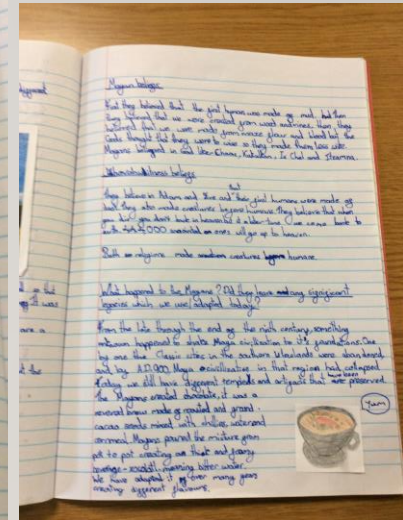 Mayan beliefs
that they believed that the first humans were made of mud, but then
they believed that we were created from wood and then, they
believed that we were made from maize flour and blood but the
Gods thought that they were to wise so they made them less wise.
Mayans believed in God like Chaac, Kukulkan, Ix Chel and Itzamna.
beliefs
They believe in Adam and Eve and that their first humans were made of
They also made creatures before humans. They believe that when
you die you don't in heaven
144,000 ones will go up to heaven.
Both religions made creatures before humans.
What happened to the Mayans? Did they have any significant
legacies which we use/adapted today?
From the late through the end of the ninth century, something
unknown happened to shake Maya civilisation to it's foundations. One
by one the Classic cities in the southern lowlands were abandoned,
and by A.D.900, Maya civilisation in that region had collapsed.
Today we still have different temples and artifacts that have been preserved
The Mayans created chocolate, it was a
revered brew made of roasted and ground
cacao seeds mixed with chillies, water and
cornmeal. Mayans poured the mixture from
pot to pot creating a thick and foamy
beverage - xocolatl meaning bitter water.
We have adapted it over many years
creating different flavours.
Yum